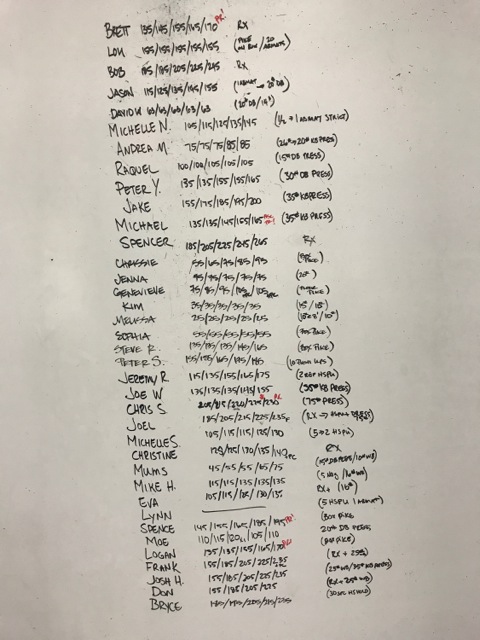 BRETT 135/145/155/165/170 PR! RX
LOU 155/155/155/155/155 (PIKE w/ / 20 ABMATS)
BOB 185/195/205/225/245 RX
JASON 115/125/135/145/155 (1 ABMAT → 20# DB)
DAVID W 63/63/63/63/63 (20# DB / 15#)
MICHELLE N. 105/115/125/135/145 (1/2 → 1 ABMAT STRICT)
ANDREA M 75/75/75/85/85 (26# → 20# KB PRESS)
RAQUEL 100/100/105/105/105 (15# DB PRESS)
PETER Y. 135/135/155/155/165 (30# DB PRESS)
JAKE 155/175/185/195/200 (35# KB PRESS)
MICHAEL 135/135/145/155/165 (35# KB PRESS)
SPENCER 185/205/225/245/265 RX
CHRISSIE 55/65/75/85/95
JENNA 75/75/75/75 (20#)
GENEVIEVE 75/85/95/105/105
KIM 35/35/35/35/35 (15#/15#)
MELISSA 25/25/25/25/25
SOPHIA 55/55/55/55/55 (BOX PIKE)
STEVE R. 135/135/135/145/165 (BOX PIKE)
PETER S. 155/155/165/195/195 (10 PUSH UPS)
JEREMY R 115/135/155/165/175 (2 REP HSPU)
JOE W 135/135/135/145/155 (35# KB PRESS)
CHRIS S 205/215/220/225/230 PR (75# PRESS)
JOEL 185/205/215/225/235F (RX → HSPU PRESS)
MICHELLE S. 105/115/115/125/130 (5→2 HSPU)
CHRISTINE 125/130/135/140 PC RX
MUMS 45/55/55/65/75
MIKE H. 115/115/135/135/135 RX+ (10#)
EVA 105/115/125/130/135 (5 HSPU 1 ABMAT)
LYNN (BOX PIKE)
SPENCE 145/155/165/185/195 PR! 20# DB PRESS
MOE 110/115/120/105/110 (BOX PIKE)
LOGAN 135/135/155/165/170 PR! (RX + 25#)
FRANK 155/185/205/225/235 (25# WB/35# KB PRESS)
JOSH H. 155/185/205/225/235 (RX + 25# WB)
DON 155/185/205/225 (30 SEC HS HOLD)
BRYCE 145/195/205/215/235